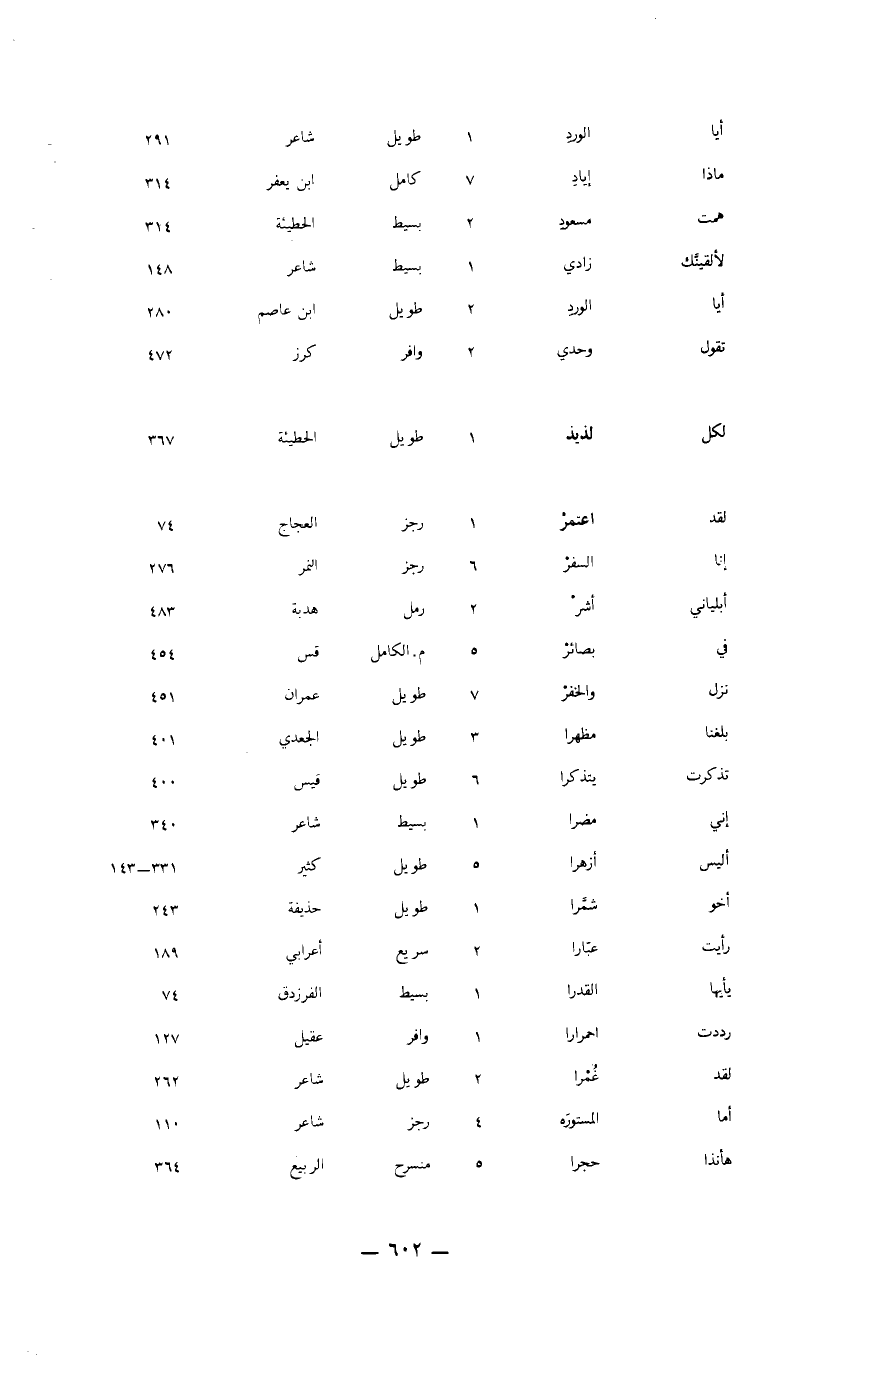 أيا الوردِ ١ طويل شاعر ٢٩١
ماذا إيادِ ٧ كامل ابن يعفر ٣١٤
همت مسعودِ ٢ بسيط الحطيئة ٣١٤
لألقينَّك زادي ١ بسيط شاعر ١٤٨
أيا الوردِ ٢ طويل ابن عاصم ٢٨٠
تقول وحدي ٢ وافر كرز ٤٧٢
لكل لذيذ ١ طويل الحطيئة ٣٦٧
لقد اعتمرْ ١ رجز العجاج ٧٤
إنا السفرْ ٦ رجز النمر ٢٧٦
أبلياني أشرْ ٢ رمل هدبة ٤٨٣
في بصائرْ ٥ م.الكامل قس ٤٥٤
نزل والخفرْ ٧ طويل عمران ٤٥١
بلغنا مظهرا ٣ طويل الجعدي ٤٠١
تذكرت يتذكرا ٦ طويل قيس ٤٠٠
إني مضرا ١ بسيط شاعر ٣٤٠
أليس أزهرا ٥ طويل كثير ٣٣١–١٤٣
أخو شمَّرا ١ طويل حذيفة ٢٤٣
رأيت عبّارا ٢ سريع أعرابي ١٨٩
يأيها القدرا ١ بسيط الفرزدق ٧٤
رددت احمرارا ١ وافر عقيل ١٢٧
لقد غُمْرا ٢ طويل شاعر ٢٦٢
أما المستورَه ٤ رجز شاعر ١١٠
هأنذا حجرا ٥ منسرح الربيع ٣٦٤
— ٦٠٢ —